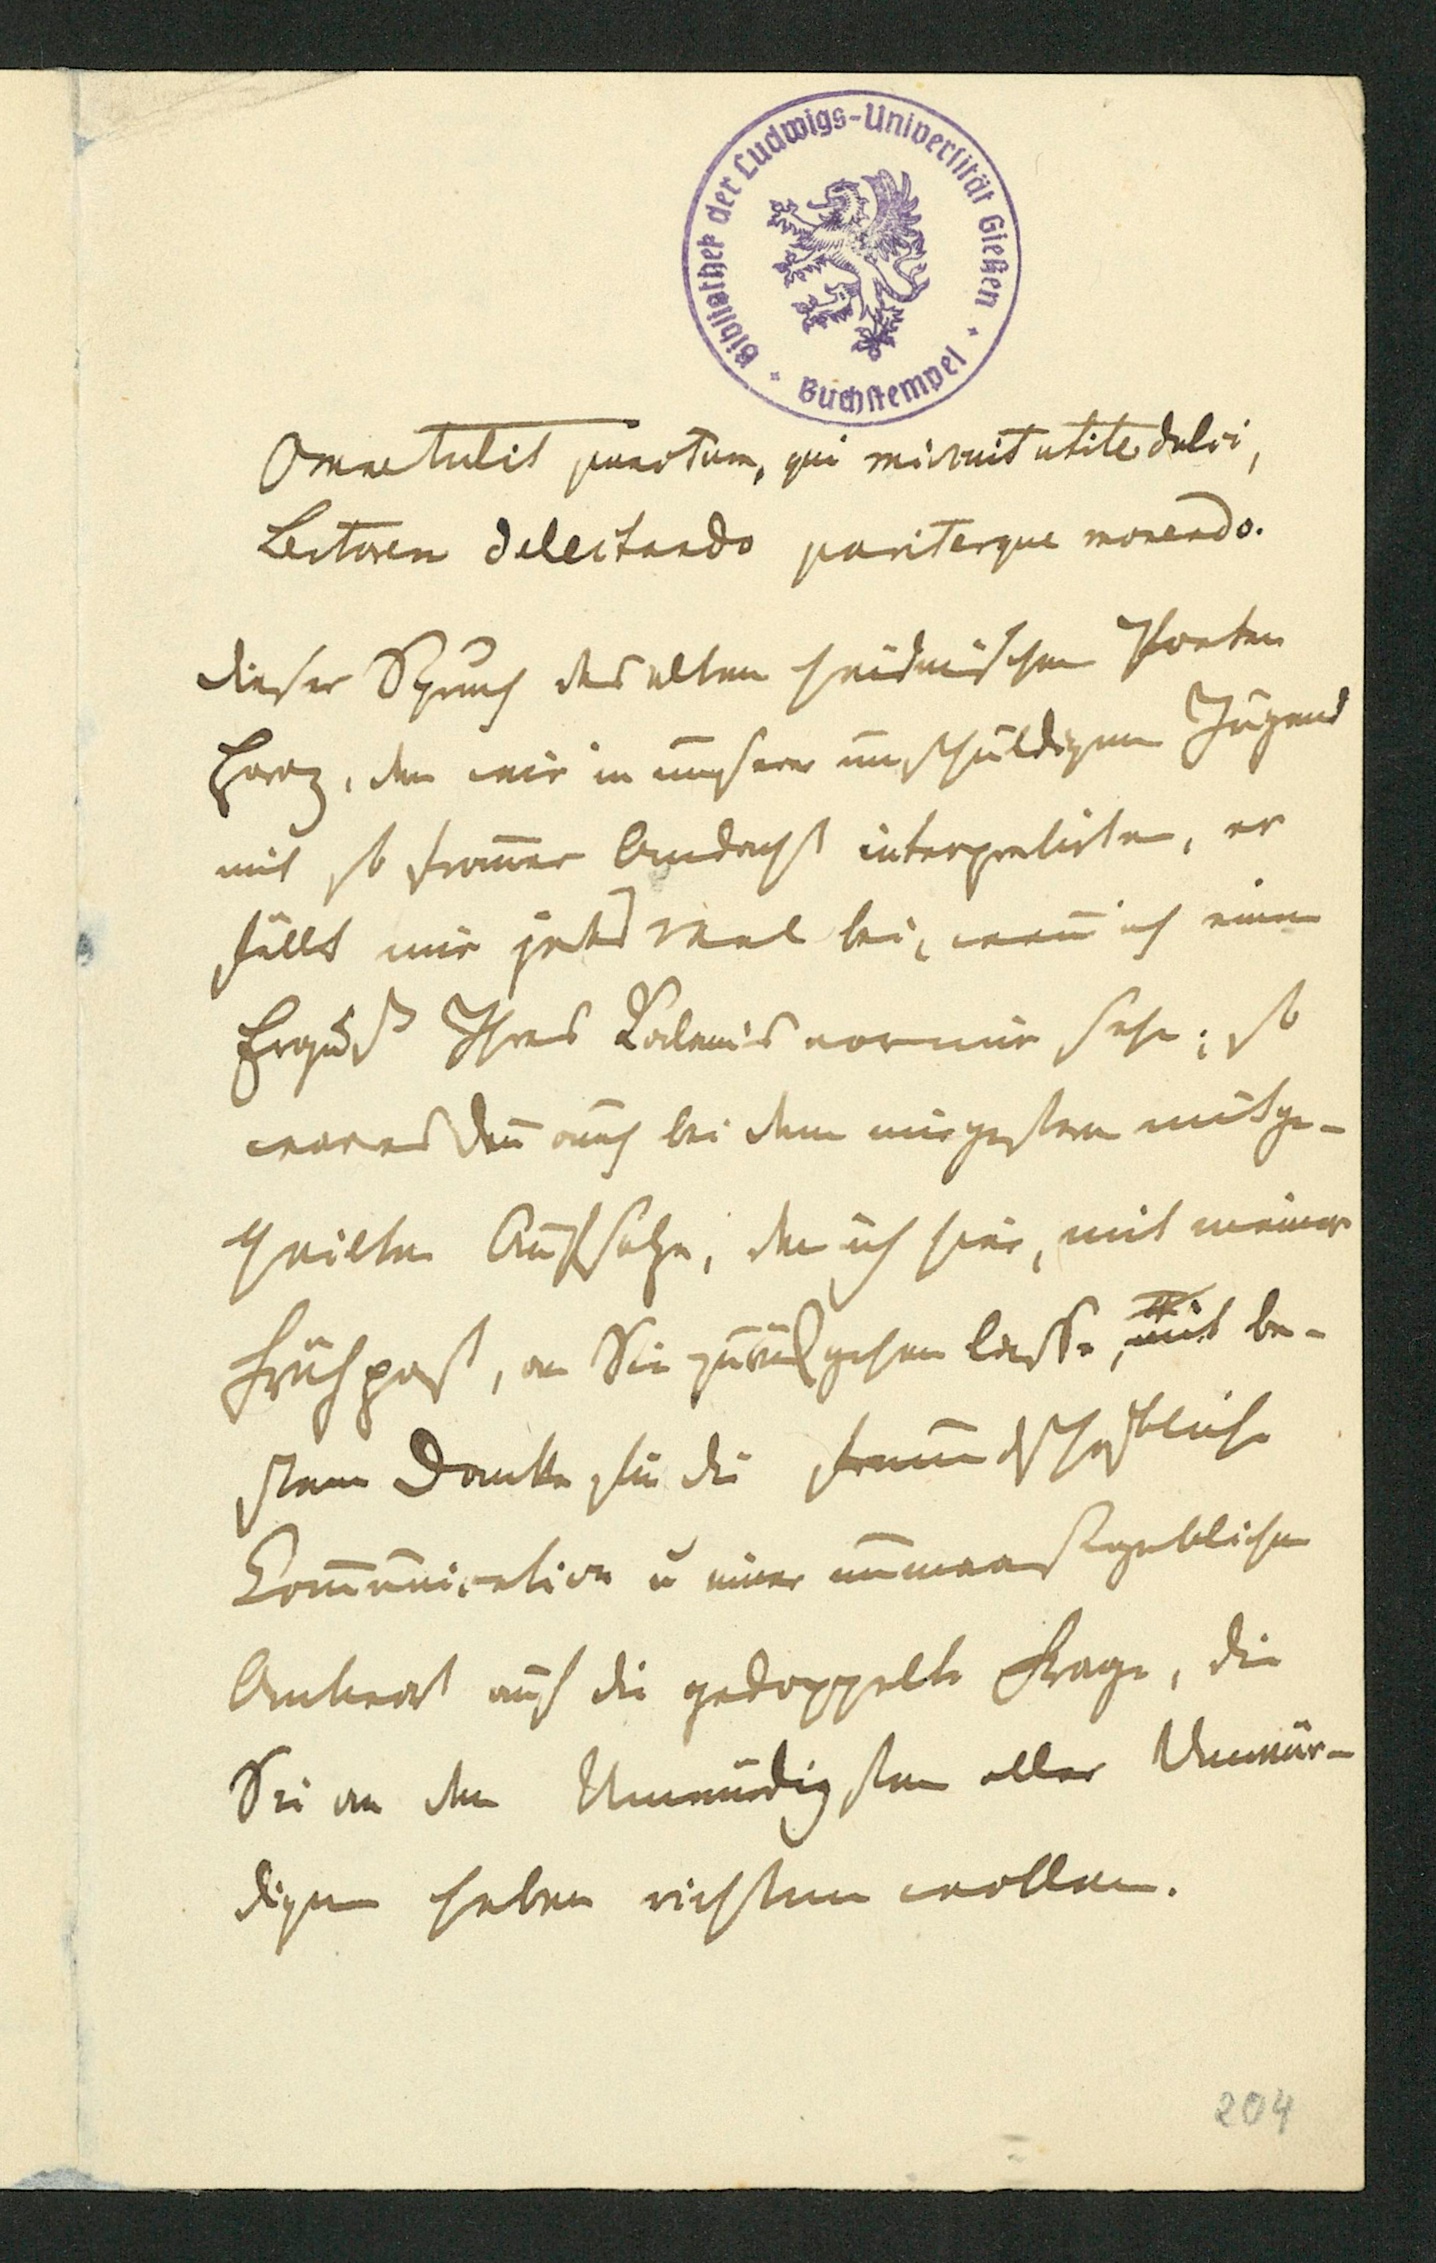 Bibliothek der Ludwigs-Universität Gießen
Buchstempel
Omne tulit punctum, qui miscuit utile dulci,
Lectorem delectando pariterque monendo.
dieser Spruch des alten heidnischen Poeten
Horaz, den wir in unserer unschuldigen Jugend
mit so from̄er Andacht interpretirten, er
fällt mir jedes Mal bei, wen̄ ich einen
Erguß Ihres Calamis vor mir sehe; so
war es den̄ auch bei dem mir gestern mitge-
theilten Aufsatze, den ich hier, mit meiner
Frühpost, an Sie zurückgehen lasse, mit be-
stem Danke für die freundschaftliche
Com̄unication u einer unmaasgeblichen
Antwort auf die gedoppelte Frage, die
Sie an den Unwürdigsten aller Unwür-
digen haben richten wollen.
204